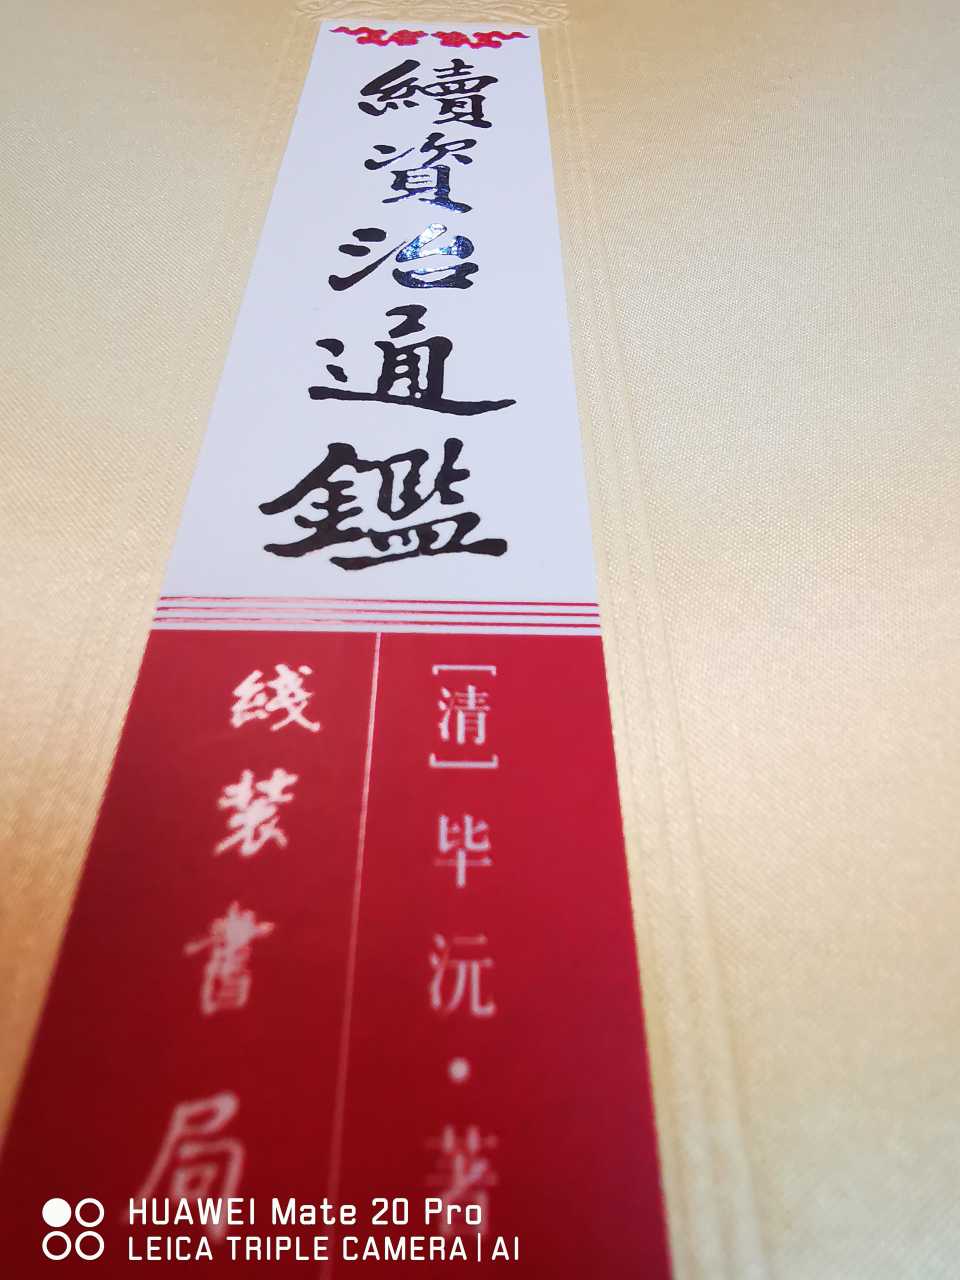 續資治通鑑
[清]毕沅·著
綫装書局
HUAWEI Mate 20 Pro
LEICA TRIPLE CAMERA | AI